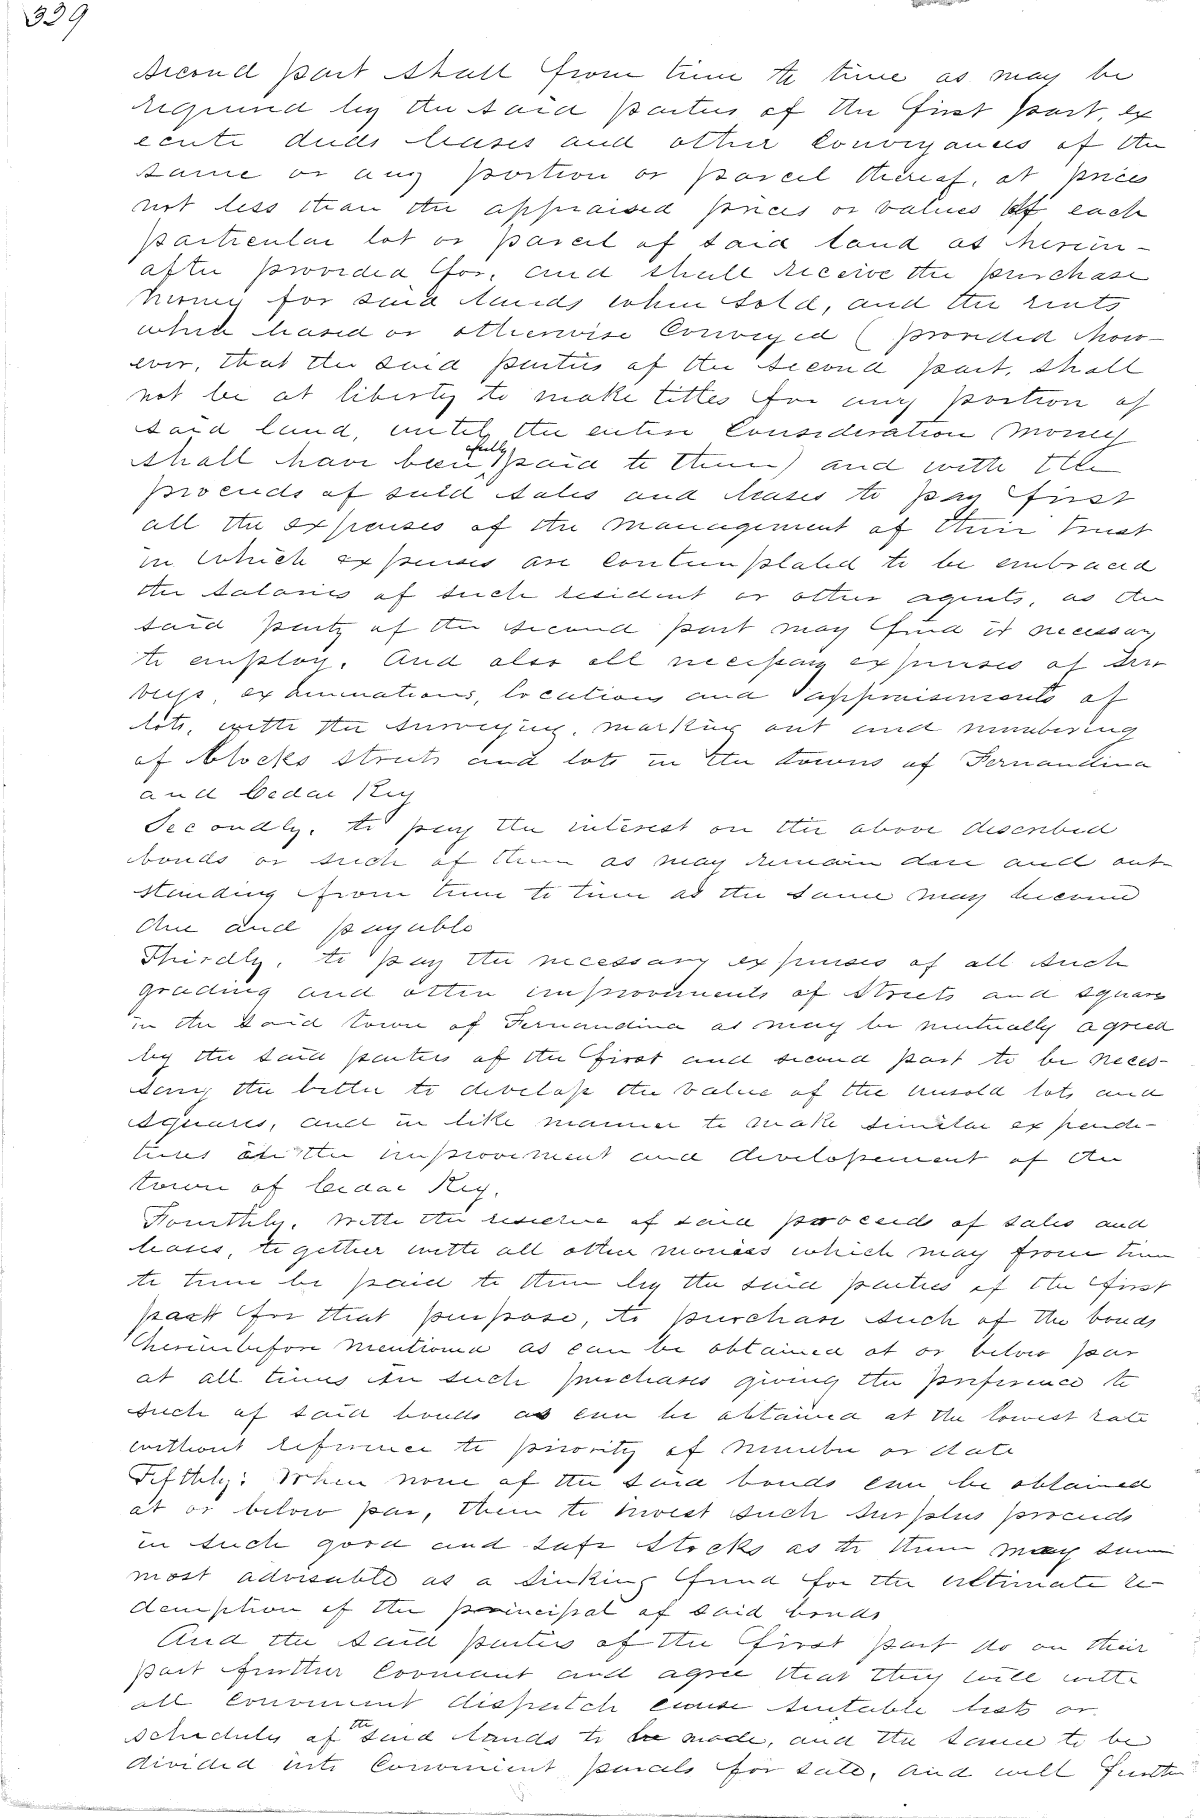 339
second part shall from time to time as may be
required by the said parties of the first part, ex
ecute deeds leases and other conveyances of the
same or any portion or parcel thereof, at prices
not less than the appraised prices or values of each
particular lot or parcel of said land as herein-
after provided for, and shall receive the purchase
money for said lands when sold, and the rents
when leased or otherwise conveyed (provided how-
ever, that the said parties of the second part, shall
not be at liberty to make titles for any portion of
said land, until the entire consideration money
shall have been fully paid to them) and with the
proceeds of said sales and leases to pay first
all the expenses of the management of their trust
in which expenses are contemplated to be embraced
the salaries of such resident or other agents, as the
said party of the second part may find it necessary
to employ. And also all necessary expenses of sur
veys, examinations, locations and appraisements of
lots, with the surveying, marking out and numbering
of blocks streets and lots in the towns of Fernandina
and Cedar Key
Secondly, to pay the interest on the above described
bonds or such of them as may remain due and out-
standing from time to time as the same may become
due and payable
Thirdly, to pay the necessary expenses of all such
grading and other improvements of streets and squares
in the said town of Fernandina as may be mutually agreed
by the said parties of the first and second part to be neces-
sary the better to develop the value of the unsold lots and
squares, and in like manner to make similar expendi-
tures in the improvement and developement of the
town of Cedar Key.
Fourthly. With the reserve of said proceeds of sales and
leases, together with all other monies which may from time
to time be paid to them by the said parties of the first
part for that purpose, to purchase such of the bonds
hereinbefore mentioned as can be obtained at or below par
at all times in such purchases giving the preference to
such of said bonds as can be obtained at the lowest rate
without reference to priority of number or date
Fifthly: When none of the said bonds can be obtained
at or below par, them to invest such surplus proceeds
in such good and safe stocks as to them may seem
most advisable as a sinking fund for the ultimate re-
demption of the principal of said bonds
And the said parties of the first part do on their
part further covenant and agree that they will with
all convenient dispatch cause suitable lists or
schedules of the said lands to be made, and the same to be
divided into convenient parcels for sale, and will further